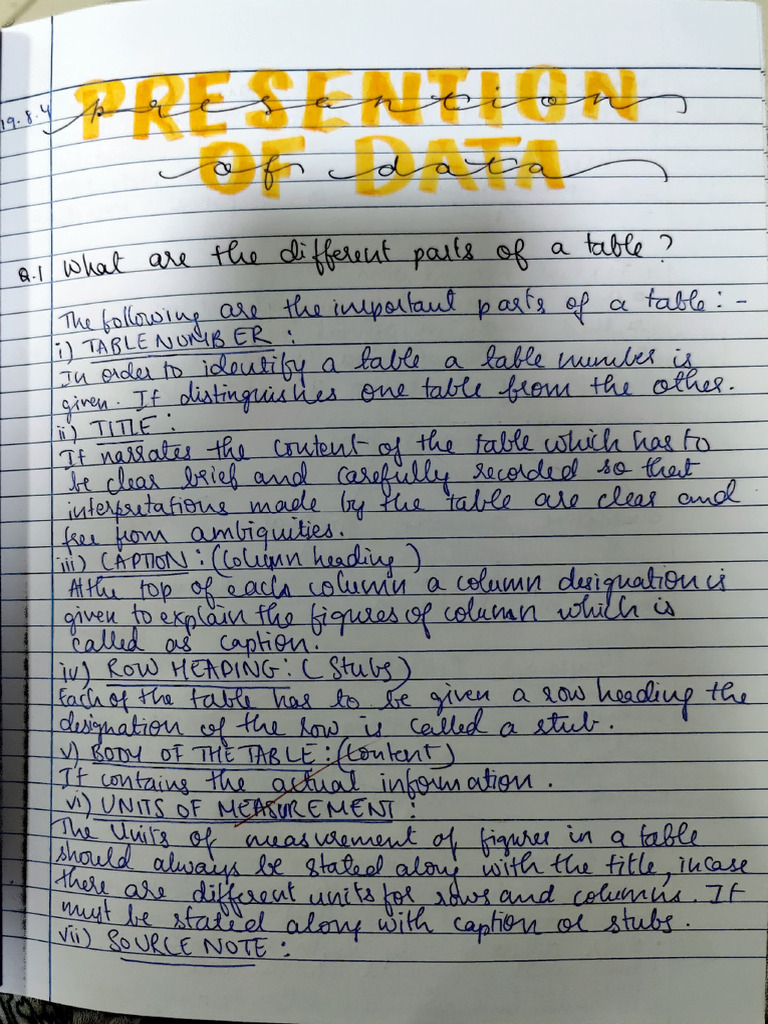 19.8.4
PRESENTION
presention
OF DATA
of data
Q.1 What are the different parts of a table?
The following are the important parts of a table: -
i) TABLE NUMBER :
In order to identify a table a table number is
given. It distinguishes one table from the other.
ii) TITLE :
It narrates the content of the table which has to
be clear brief and carefully recorded so that
interpretations made by the table are clear and
free from ambiquities.
iii) CAPTION : (Column heading)
At the top of each column a column designation is
given to explain the figures of column which is
called as caption.
iv) ROW HEADING : (Stubs)
Each of the table has to be given a row heading the
designation of the row is called a stub.
v) BODY OF THE TABLE : (Content)
It contains the actual information.
vi) UNITS OF MEASUREMENT :
The Units of measurement of figures in a table
should always be stated along with the title, incase
there are different units for rows and columns. It
must be stated along with caption or stubs.
vii) SOURCE NOTE :